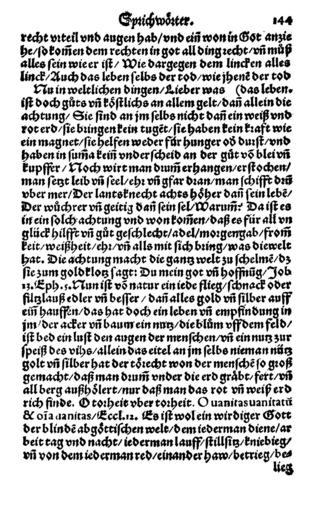 Sprichwörter. 144
recht vrteil vnd augen hab/vnd ein̄ won in Got anzie
he/so kom̄en dem rechten in got all ding recht/vn̄ můß
alles sein wie er ist/ Wie dargegen dem lincken alles
linck/Auch das leben selbs der tod/wie jhenē der tod
Nu in weltlichen dingen/Lieber was (das leben.
ist doch gůts vn̄ köstlichs an allem gelt/dan̄ allein die
achtung/ Sie sind an jm selbs nicht dan̄ ein weiß vnd
rot erd/sie bringen kein tugēt/sie haben kein kraft wie
ein magnet/sie helfen weder für hunger oð durst/vnd
haben in sum̄a kein̄ vnderscheid an der gůt vō blei vn̄
kupffer/ Noch wirt man drum̄ erhangen/erstochen/
man setzt leib vn̄ seel/ehr vn̄ gfar dran/man schifft drū
vber mer/Der lantsknecht achts höher dan̄ sein lebē/
Der wůchrer vn̄ geitzig dan̄ sein sel/Warum̄? Da ist es
in ein solch achtung vnd won kom̄en/daß es für all vn
glück hilfft vn̄ gůt geschlecht/adel/morgengab/from̄
keit/weißheit/ehr/vn̄ als mit sich bring/was die welt
hat. Die achtung macht die gantz welt zu schelmē/dz
sie zum goldklotz sagt: Du mein got vn̄ hoffnūg/Job
13.Eph.5.Nun ist vō natur ein iede flieg/schnack oder
filtzlauß edler vn̄ besser / dan̄ alles gold vn̄ silber auff
ein̄ hauffen/das hat doch ein leben vn̄ empfindung in
jm/der acker vn̄ baum ein nutz/die blům vff dem feld/
ist bed ein lust den augen der menschen/vn̄ ein nutz zur
speiß des vihs/allein das eitel an jm selbs nieman nütz
golt vn̄ silber hat der tōrecht won der menschē so groß
gemacht/daß man drum̄ vnder die erd gråbt/fert/vn̄
all berg außhölert/nur daß man das rot vn̄ weiß erd
rich finde. O torheit vber torheit. O uanitas uanitatū
& oīa uanitas/Eccl.12. Es ist wol ein wirdiger Gott
der blindē abgöttischen welt/dem iederman diene/ar
beit tag vnd nacht/iederman lauff/stillsitz/kniebieg/
vn̄ von dem iederman red/einander haw/betrieg/be⸗
lieg